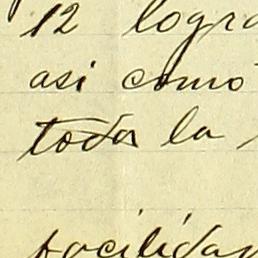 12 logra
asi como
toda la
facilidad